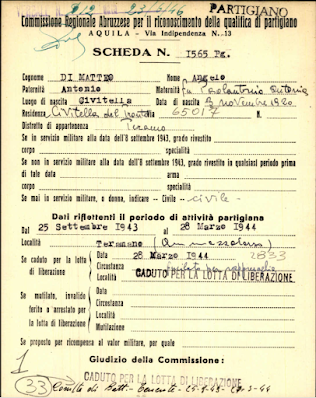 8/2 23/4/46 PARTIGIANO
Commissione Regionale Abruzzese per il riconoscimento della qualifica di partigiano
AQUILA - Via Indipendenza N. 13
SCHEDA N. 1565 Pg.
Cognome DI MATTEO Nome Angelo
Paternità Antonio Maternità fu
Luogo di nascita Civitella Data di nascita 3 novembre 1920
Residenza Civitella del Tronto Via 65017 N.
Distretto di appartenenza Teramo
Se in servizio militare alla data dell'8 settembre 1943, grado rivestito in quel periodo
corpo specialità
Se non in servizio militare alla data dell'8 settembre 1943, grado rivestito in qualsiasi periodo prima
di tale data arma
corpo specialità
Se mai in servizio militare, o donna, indicare - Civile - civile -
Dati riflettenti il periodo di attività partigiana
Dal 25 Settembre 1943 al 28 Marzo 1944
Località Teramano
Se caduto per la lotta di liberazione
Data 28 Marzo 1944 2833
Circostanza fucilato per rappresaglia
Località CADUTO PER LA LOTTA DI LIBERAZIONE
Se mutilato, invalido, ferito o arrestato per la lotta di liberazione
Data
Circostanza
Località
Mutilazione
Se proposto per ricompensa al valor militare, per quale
Giudizio della Commissione:
CADUTO PER LA LOTTA DI LIBERAZIONE
1
33